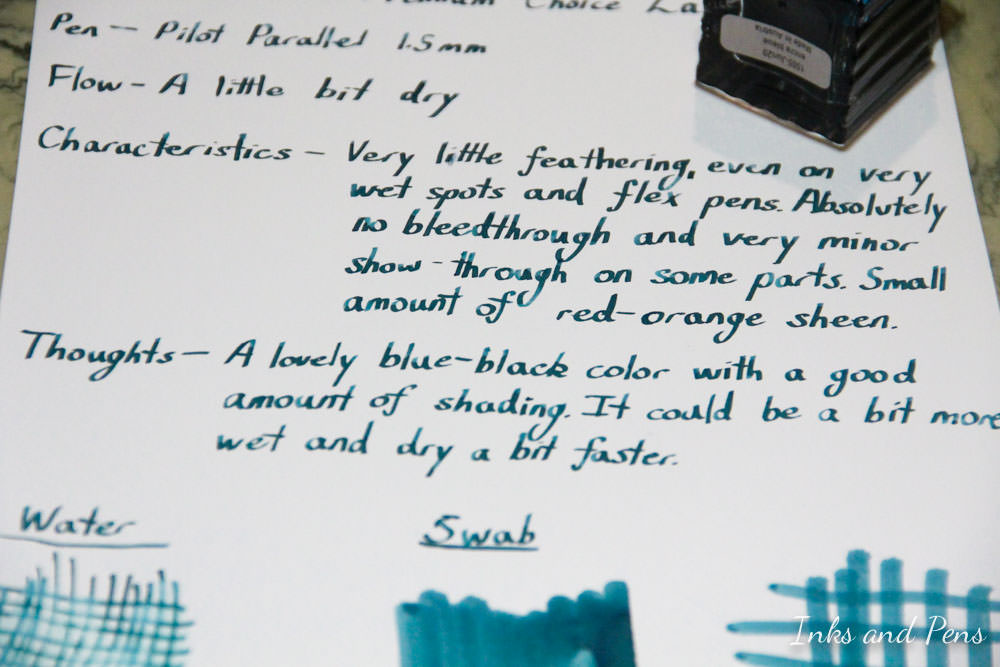 Choice
Pen - Pilot Parallel 1.5mm
Flow - A little bit dry
Characteristics - Very little feathering, even on very
wet spots and flex pens. Absolutely
no bleedthrough and very minor
show-through on some parts. Small
amount of red-orange sheen.
Thoughts - A lovely blue-black color with a good
amount of shading. It could be a bit more
wet and dry a bit faster.
Water
Swab
Made in Austria
Inks and Pens